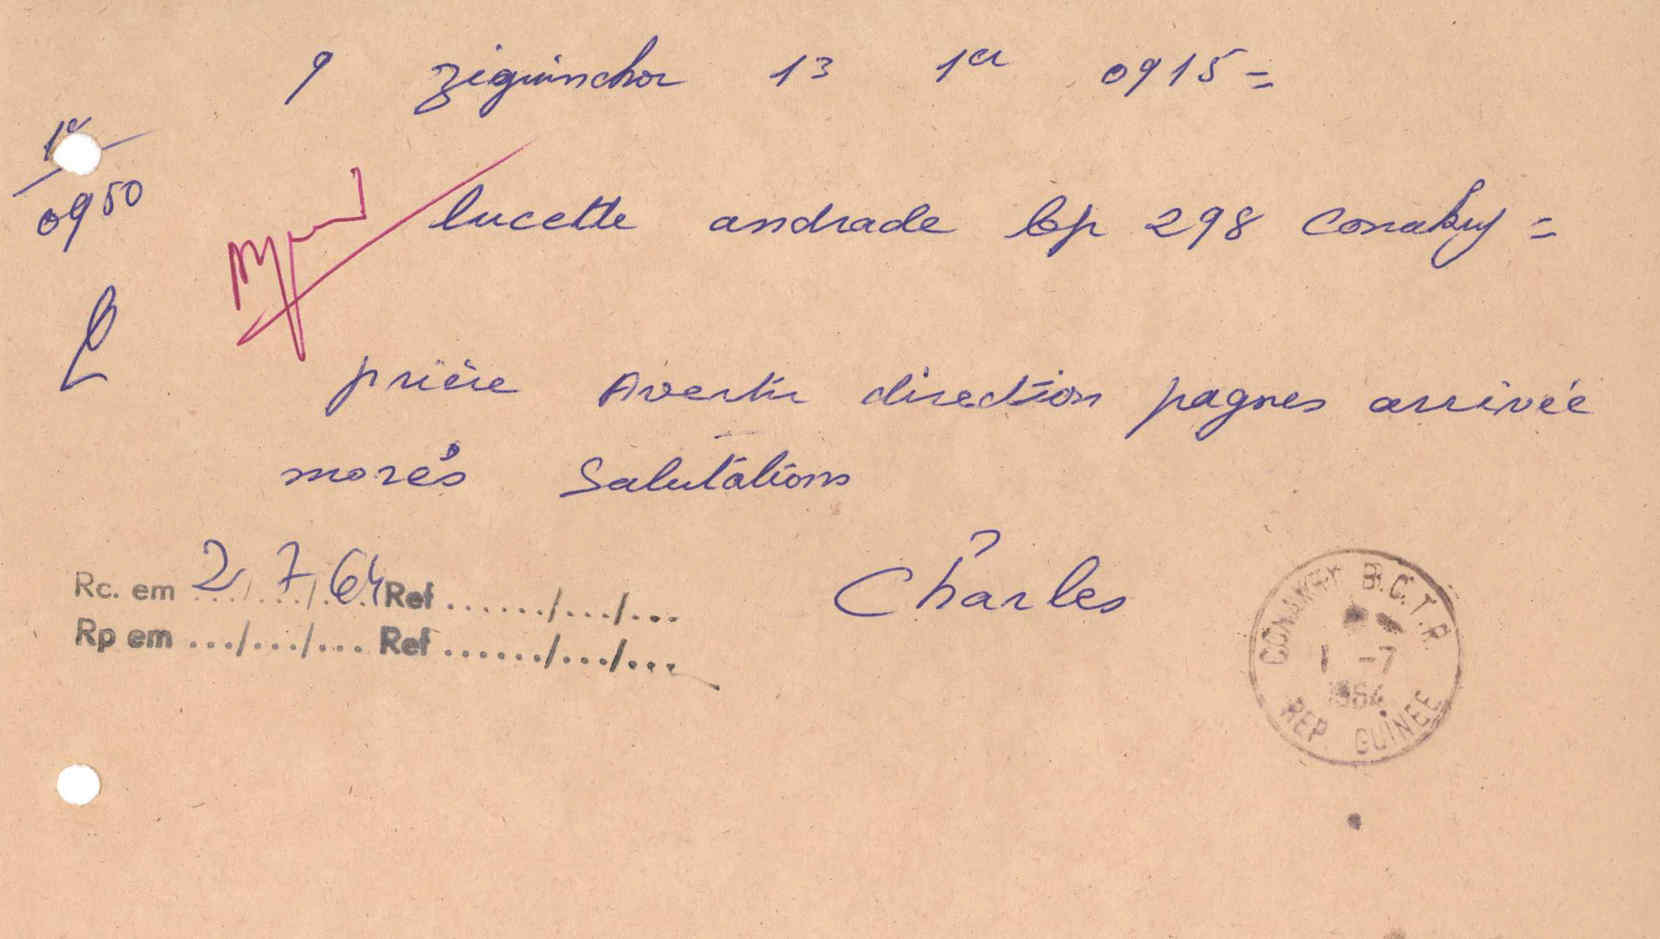 9 ziguinchor 13 1er 0915=
1er
0950
lucette andrade bp 298 Conakry =
prière Avertir direction pagnes arrivée
morés Salutations
Charles
Rc. em 2/7/64 Ref ....../.../...
Rp em .../.../... Ref ....../.../...
CONAKRY B.C.T.R.
1 -7
1964
REP. GUINEE